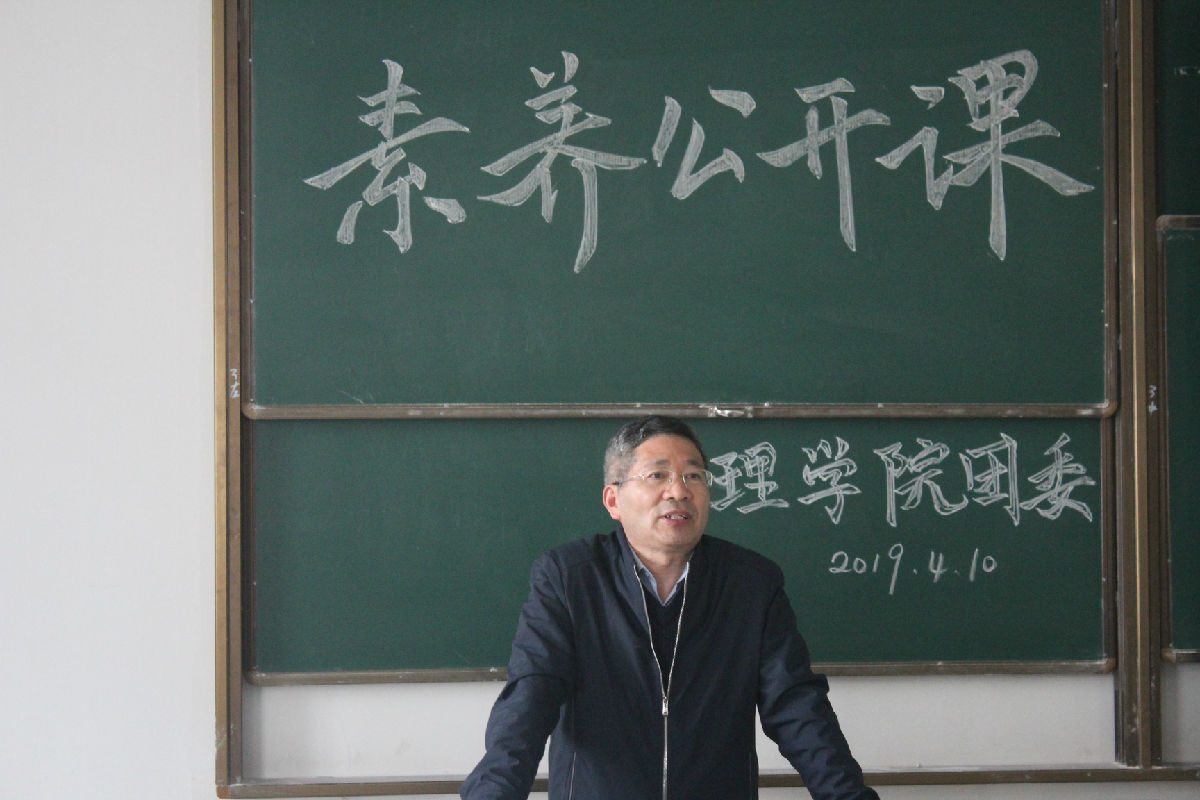 素养公开课
理学院团委
2019.4.10